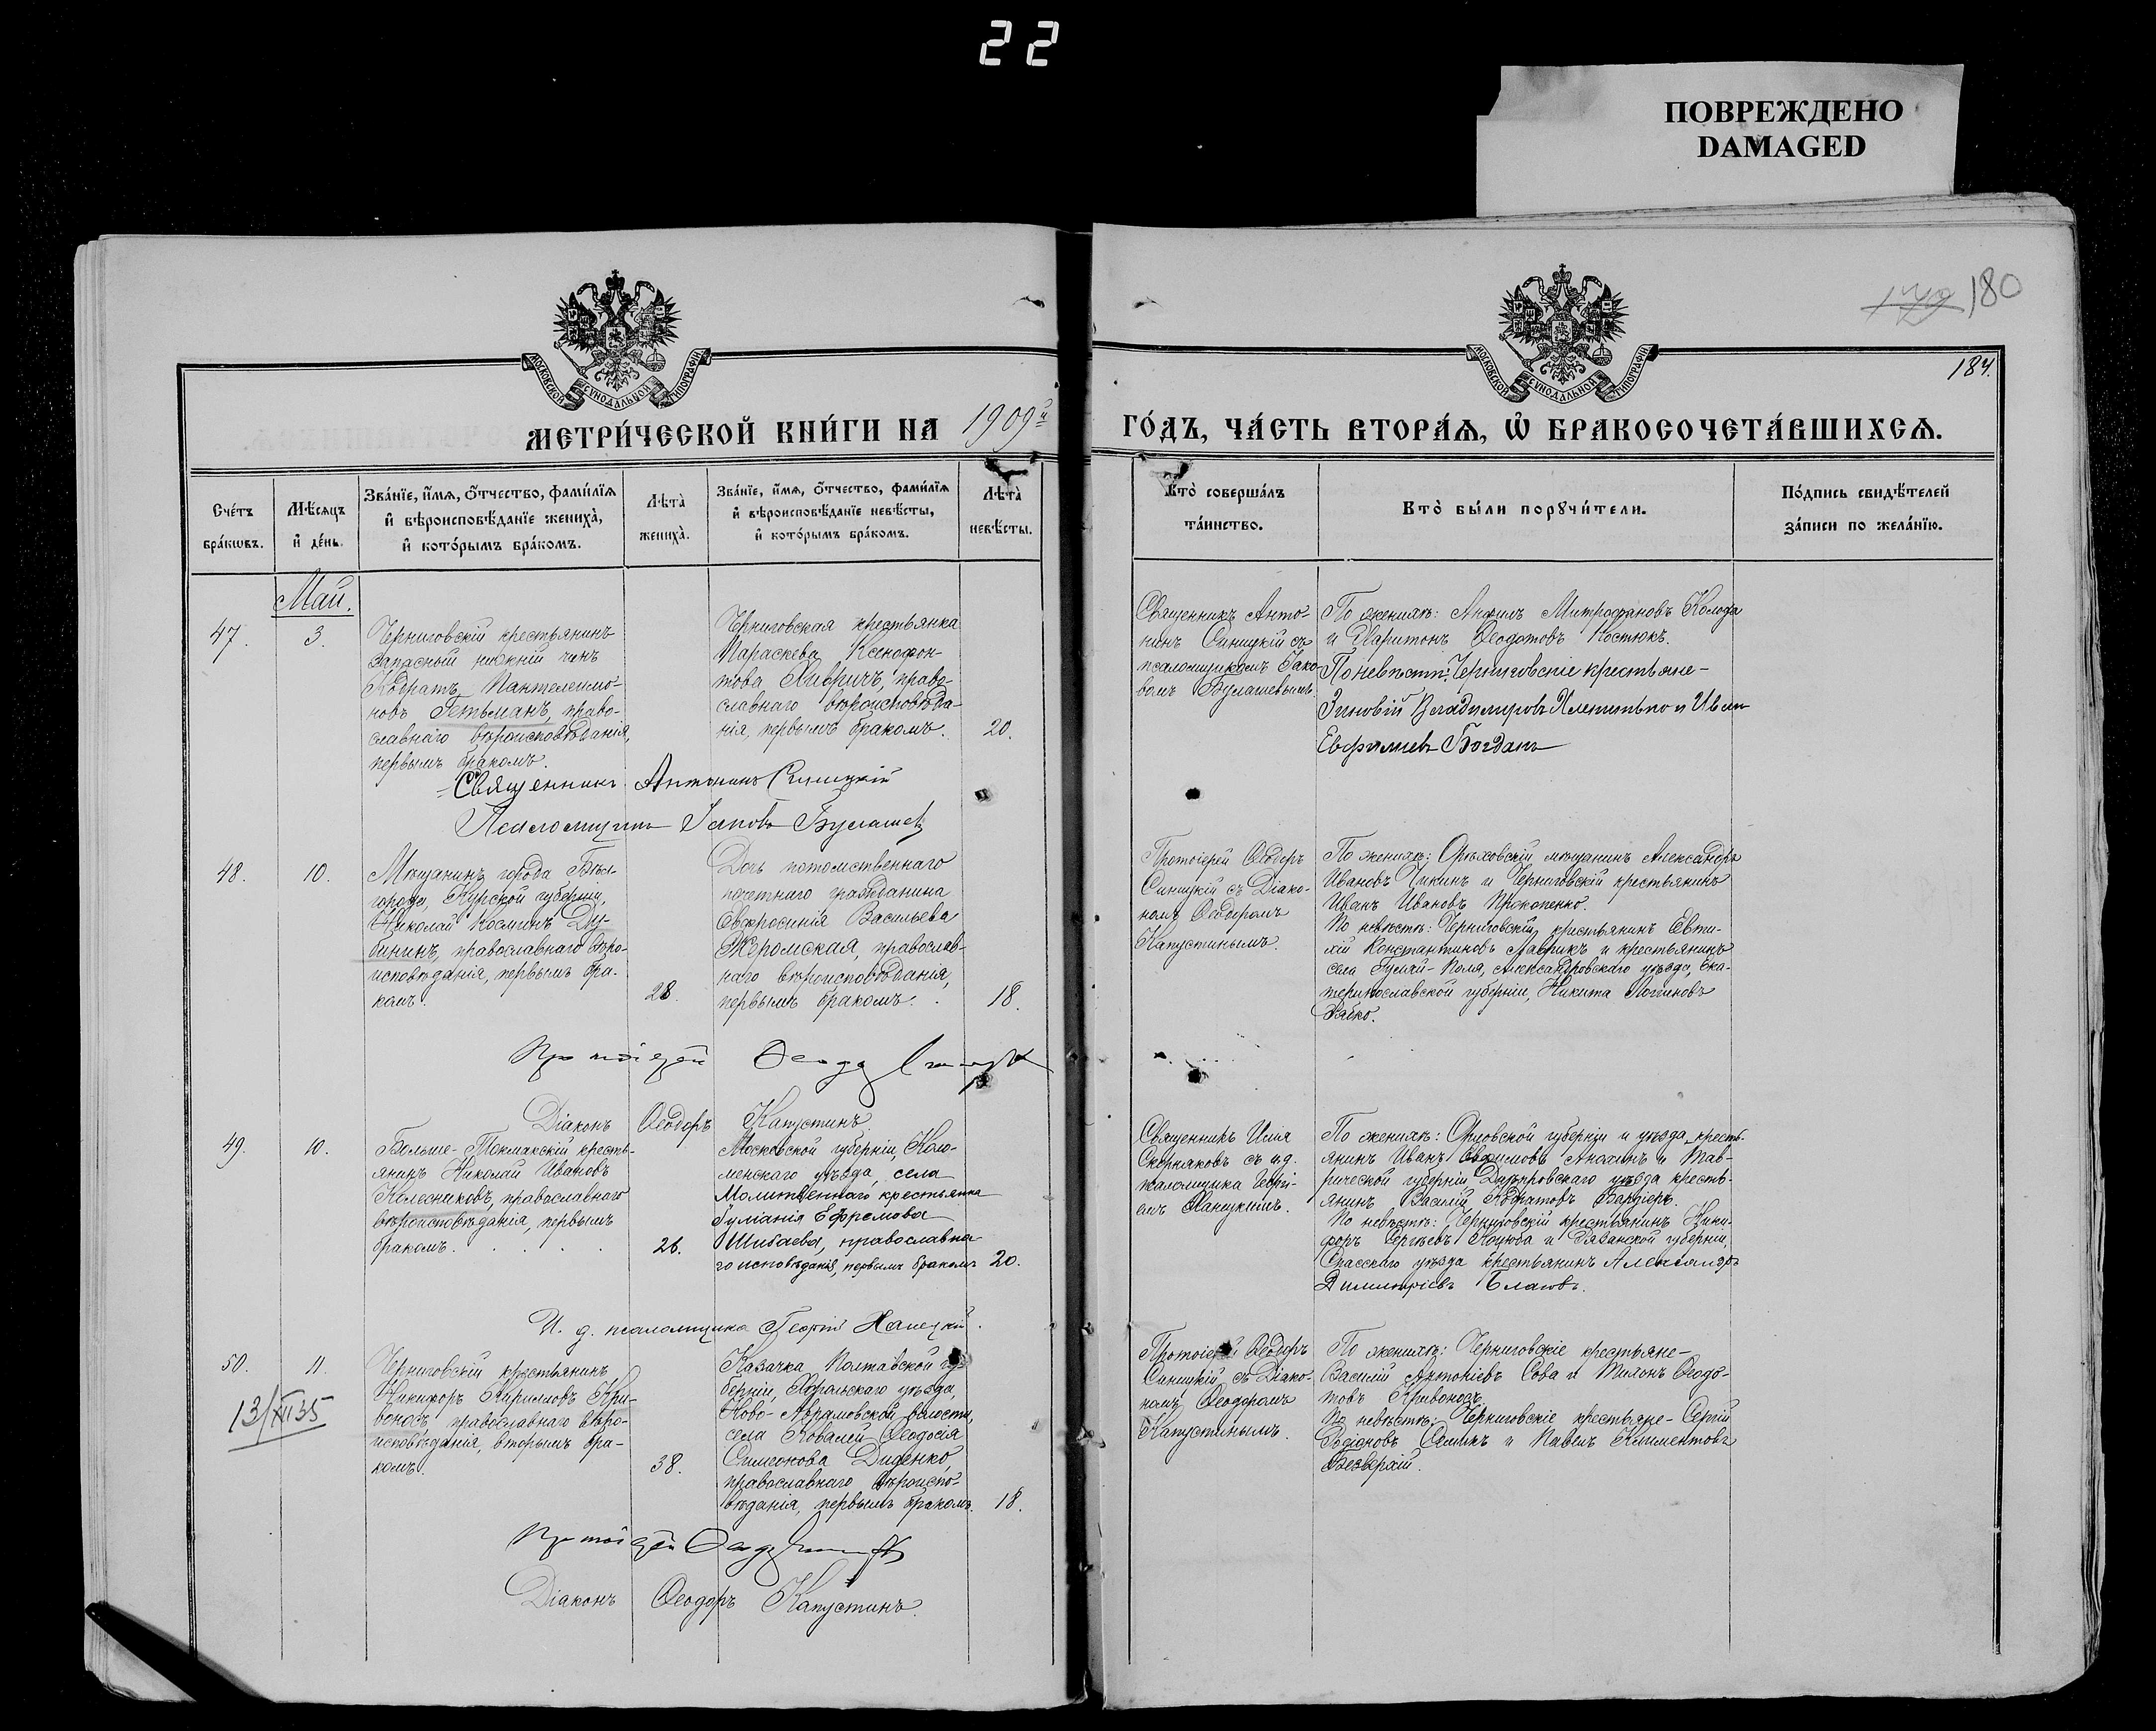 22
ПОВРЕЖДЕНО
DAMAGED
180
184.
МОСКОВСКОЙ СѴНОДАЛЬНОЙ ТИПОГРАФІИ
МОСКОВСКОЙ СѴНОДАЛЬНОЙ ТИПОГРАФІИ
МЕТРИ́ЧЕСКОЙ КНИ́ГИ НА 1909й
ГО́ДЪ, ЧА́СТЬ ВТОРА́Ѧ, Ѽ БРАКОСОЧЕТА́ВШИХСѦ.
Сче́тъ
бра́кѡвъ.
Мѣ́сяцъ
и҆ де́нь.
Зва́нїе, и҆́мѧ, ѻ҆́тчество, фами́лїѧ
и҆ вѣроисповѣ́данїе жениха̀,
и҆ кото́рымъ бра́комъ.
Лѣта̀
жениха̀.
Зва́нїе, и҆́мѧ, ѻ҆́тчество, фами́лїѧ
и҆ вѣроисповѣ́данїе невѣ́сты,
и҆ кото́рымъ бра́комъ.
Лѣта̀
невѣ́сты.
Кто̀ соверша́лъ
та́инство.
Кто̀ бы́ли порꙋчи́тели.
По́дпись свидѣ́телей
за́писи по жела́нїю.
Май.
47.
3.
Черниговскій крестьянинъ
запасный нижній чинъ
Кодратъ Пантелеимо-
новъ Гетьманъ, право-
славнаго вѣроисповѣданія,
первымъ бракомъ.
Черниговская крестьянка
Параскева Ксенофон-
това Хивричъ, право-
славнаго вѣроисповѣда-
нія, первымъ бракомъ.
20.
Священникъ Анто-
нинъ Синицкій съ
псаломщикомъ Іако-
вомъ Булашевымъ.
По женихѣ: Митрофановъ Колода
и Харитонъ Ѳеодотовъ Костюкъ.
По невѣстѣ: Черниговскіе крестьяне-
Зиновій Владимировъ и Иванъ
Богданъ
Священникъ Антонинъ Синицкій
Псаломщикъ Іаковъ Булашевъ
48.
10.
Мѣщанинъ города Бѣл-
города, Курской губерніи,
Николай Косминъ Ду-
бининъ, православнаго вѣро-
исповѣданія, первымъ бра-
комъ.
28.
Дочь потомственнаго
почетнаго гражданина
Евфросинія Васильева
Жеромская, православ-
наго вѣроисповѣданія,
первымъ бракомъ.
18.
Протоіерей Ѳеодоръ
Синицкій съ Діако-
номъ Ѳеодоромъ
Капустинымъ.
По женихѣ: Орѣховскій мѣщанинъ Александръ
Ивановъ Чикинъ и Черниговскій крестьянинъ
Иванъ Ивановъ Прокопенко.
По невѣстѣ: Черниговскій крестьянинъ Евти-
хій Константиновъ Лаврикъ и крестьянинъ
села Гуляй-Поля, Александровскаго уѣзда, Ека-
теринославской губерніи, Никита Логгиновъ
Протоіерей Ѳеодоръ Синицкій
Діаконъ Ѳеодоръ Капустинъ.
49.
10.
Больше-Токмакскій кресть-
янинъ Николай Ивановъ
Колесниковъ, православнаго
вѣроисповѣданія, первымъ
бракомъ.
26.
Московской губерніи, Коло-
менскаго уѣзда, села
Молитвеннаго крестьянка
Іуліанія Ефремова
Шибаева, православна-
го исповѣданія, первымъ бракомъ
20.
Священникъ Илія
Скорняковъ съ и.д.
псаломщика Георгі-
емъ Ханецкимъ.
По женихѣ: Орловской губерніи и уѣзда кресть-
янинъ Иванъ Анохинъ и Тав-
рической губерніи Днѣпровскаго уѣзда кресть-
янинъ Василій Кодратовъ
По невѣстѣ: Черниговскій крестьянинъ Ники-
форъ Сергѣевъ Коцюба и Рязанской губерніи,
Спасскаго уѣзда крестьянинъ Александръ
Димитріевъ
И. д. псаломщика Георгій Ханецкій.
50.
11.
13/XII 35
Черниговскій крестьянинъ
Никифоръ Кириловъ Кри-
воносъ, православнаго вѣро-
исповѣданія, вторымъ бра-
комъ.
38.
Казачка Полтавской гу-
берніи, Хорольскаго уѣзда,
Ново-Аврамовской волости,
села Ковалей Ѳеодосія
Симеонова Диденко,
православнаго вѣроиспо-
вѣданія, первымъ бракомъ.
18.
Протоіерей Ѳеодоръ
Синицкій съ Діако-
номъ Ѳеодоромъ
Капустинымъ.
По женихѣ: Черниговскіе крестьяне-
Василій Антоніевъ Сова и Тихонъ Ѳеодо-
товъ Кривоносъ.
По невѣстѣ: Черниговскіе крестьяне- Сергій
Родіоновъ Семикъ и Павелъ Климентовъ
Безверхій.
Протоіерей Ѳеодоръ Синицкій
Діаконъ Ѳеодоръ Капустинъ.